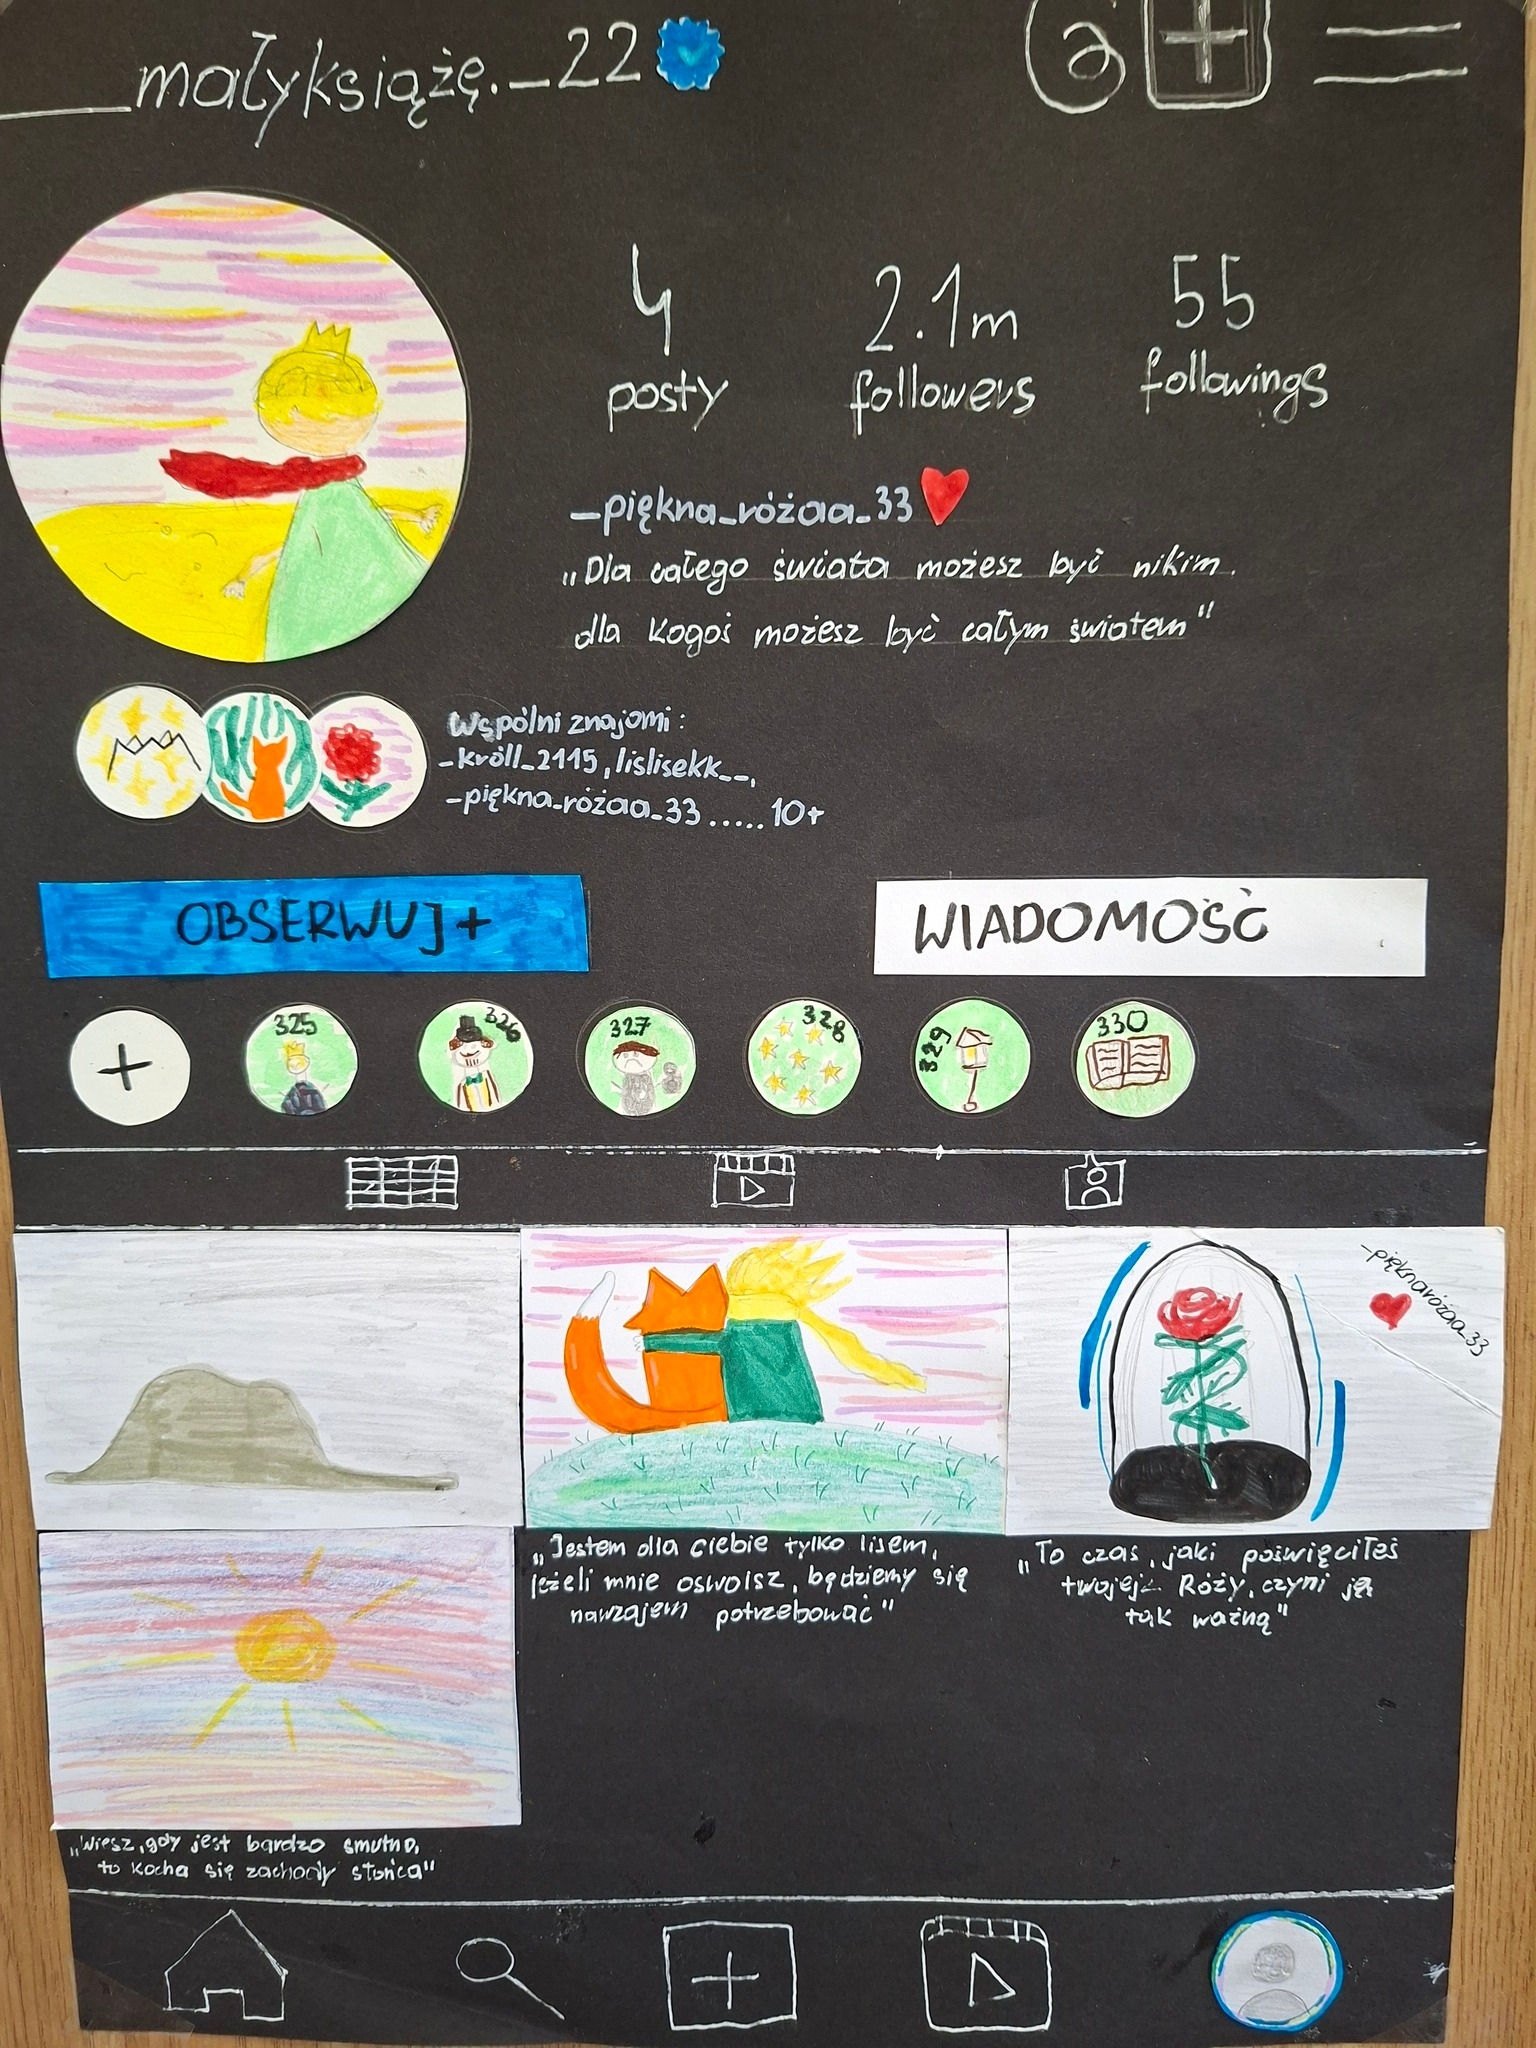 ___małyksiążę._22
4
posty
2.1m
followers
55
followings
_piękna_różaa_33
„Dla całego świata możesz być nikim,
dla kogoś możesz być całym światem"
Wspólni znajomi:
_króll_2115, lislisekk__,
_piękna_różaa_33 ..... 10+
OBSERWUJ +
WIADOMOŚĆ
325
326
327
328
329
330
_pięknaróżaa_33
„Jestem dla ciebie tylko lisem,
jeżeli mnie oswoisz, będziemy się
nawzajem potrzebować"
„To czas, jaki poświęciłeś
twojej Róży, czyni ją
tak ważną"
„Wiesz, gdy jest bardzo smutno,
to kocha się zachody słońca"